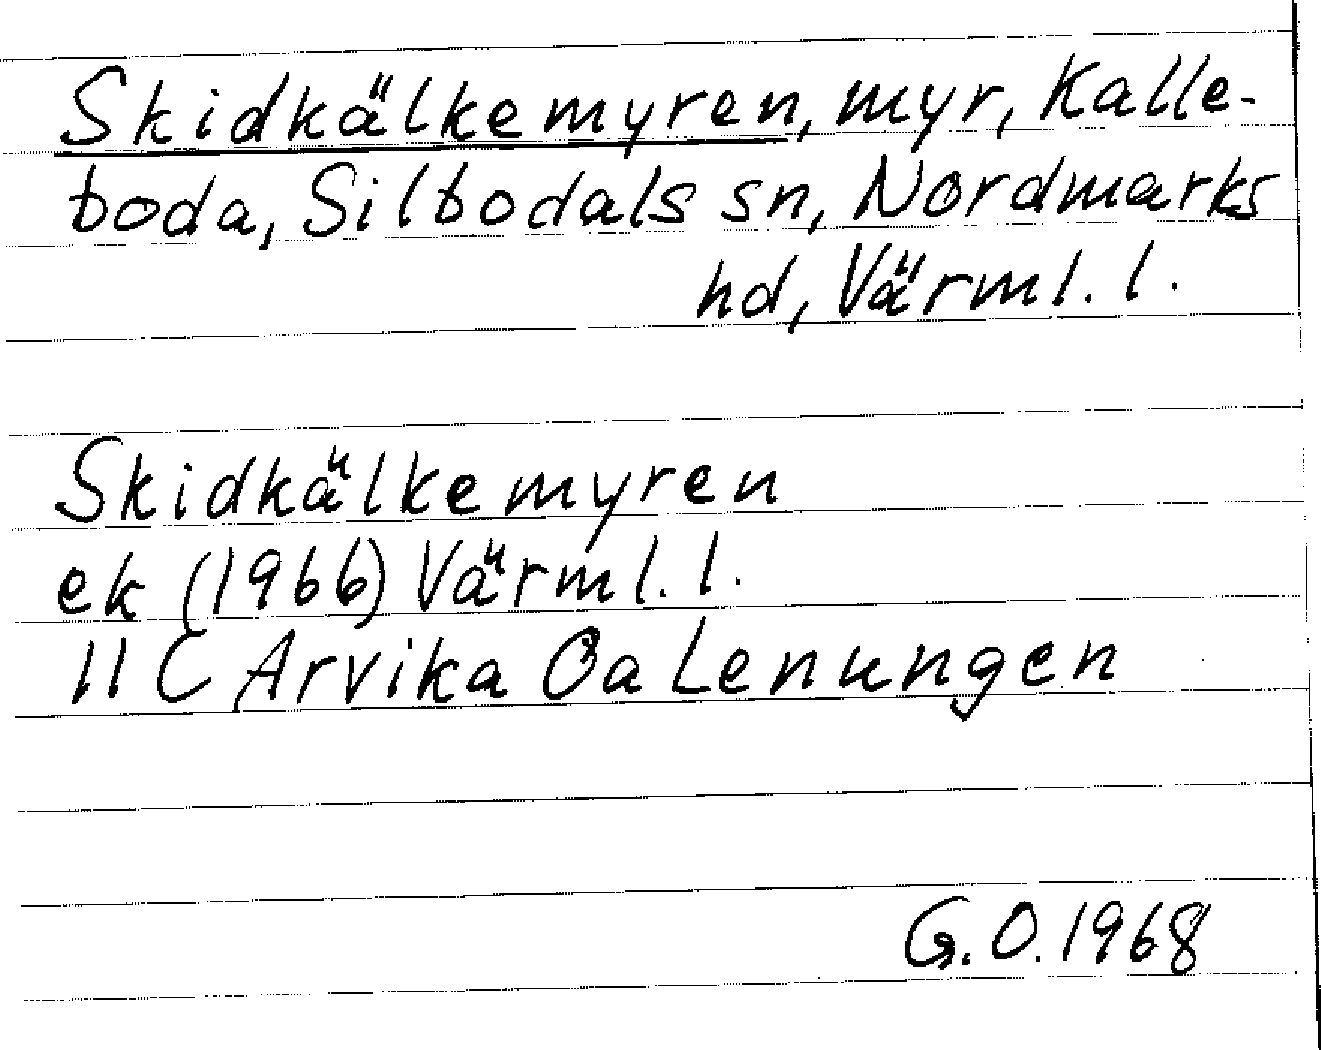 Skidkälkemyren, myr, Kalle-
boda, Silbodals sn, Nordmarks
hd, Värml. l.
Skidkälkemyren
ek (1966) Värml. l.
11 C Arvika Öa Lenungen
G. O. 1968